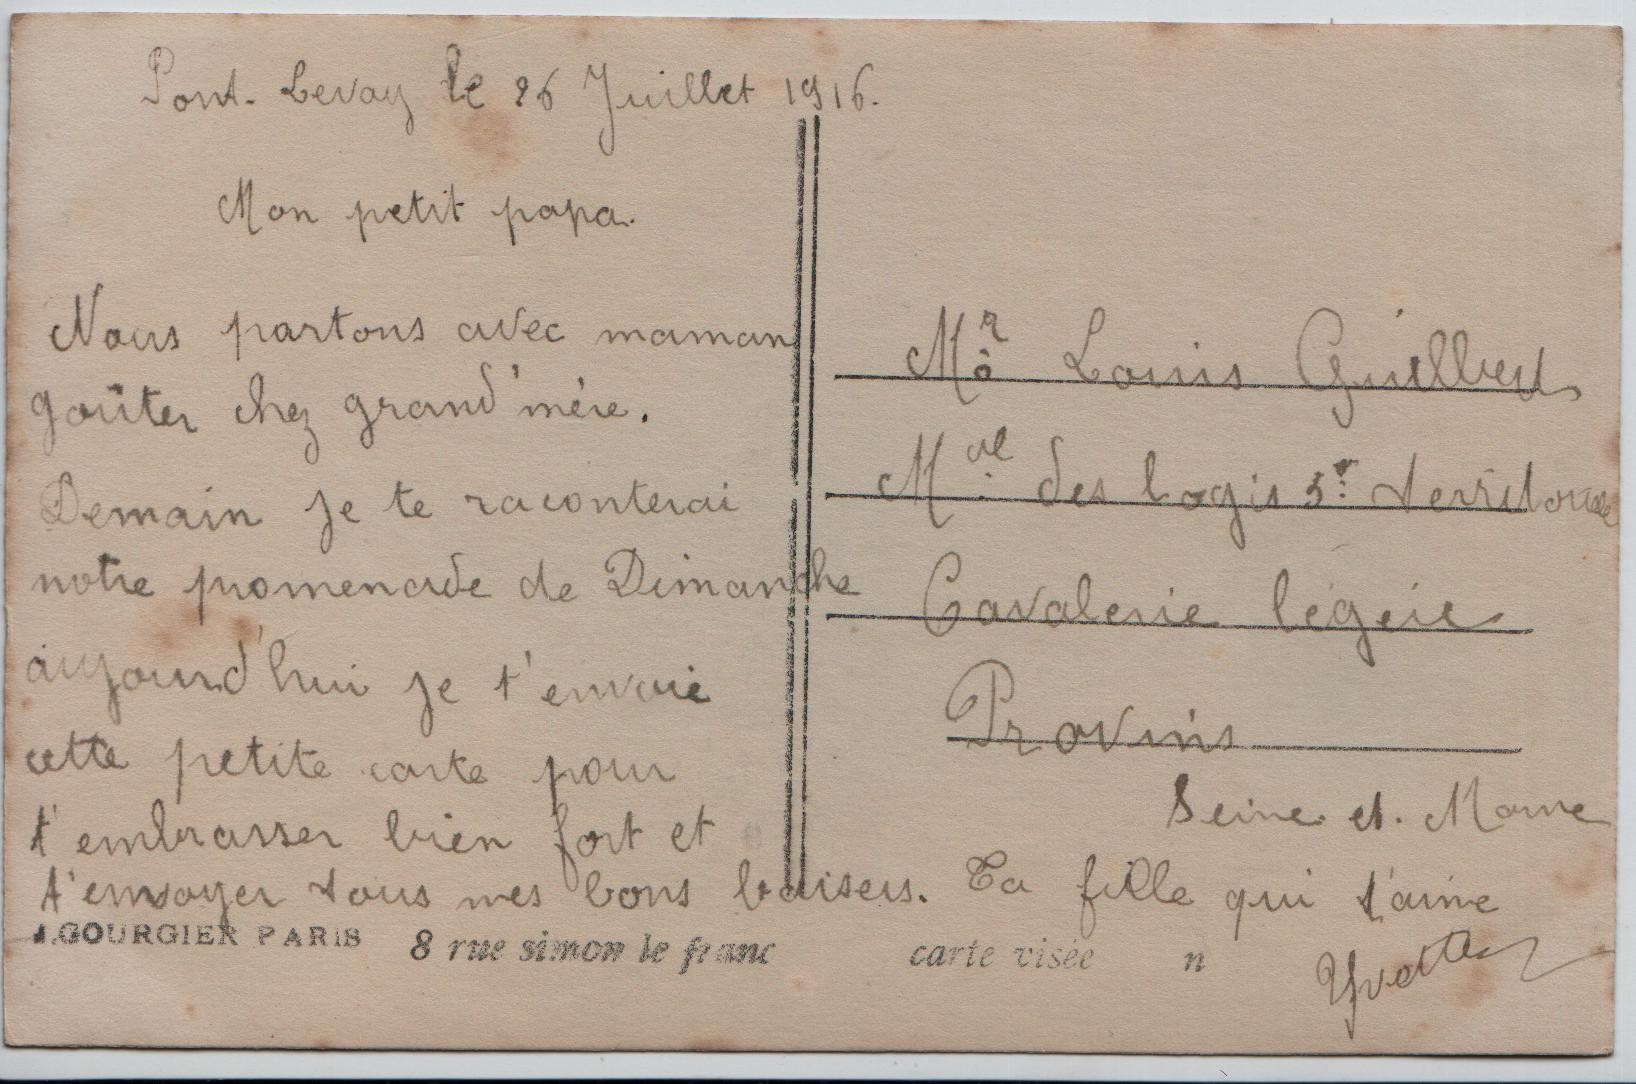 Pont-Levoy le 26 Juillet 1916.
Mon petit papa.
Nous partons avec maman
goûter chez grand'mère.
Demain je te raconterai
notre promenade de Dimanche
aujourd'hui je t'envoie
cette petite carte pour
t'embrasser bien fort et
t'envoyer tous mes bons baisers. Ta fille qui t'aime
Yvette
Mr Louis
Mal des logis 5e territoriale
Cavalerie légère
Provins
Seine et. Marne
J.GOURGIER PARIS 8 rue simon le franc carte visée n